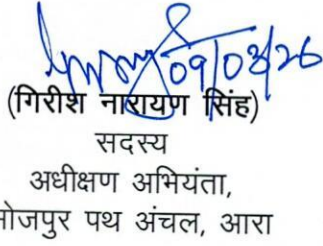 09/03/26
(गिरीश नारायण सिंह)
सदस्य
अधीक्षण अभियंता,
भोजपुर पथ अंचल, आरा